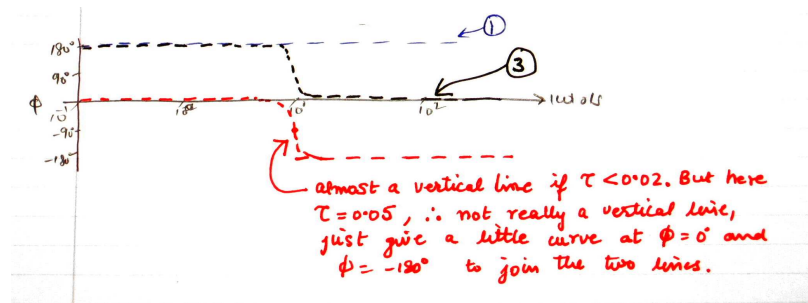 ①
180°
③
90°
ϕ
10⁻¹
10⁰
10¹
10²
-90°
-180°
almost a vertical line if τ <0.02. But here
τ = 0.05, ∴ not really a vertical line,
just give a little curve at ϕ = 0° and
ϕ = -180° to join the two lines.